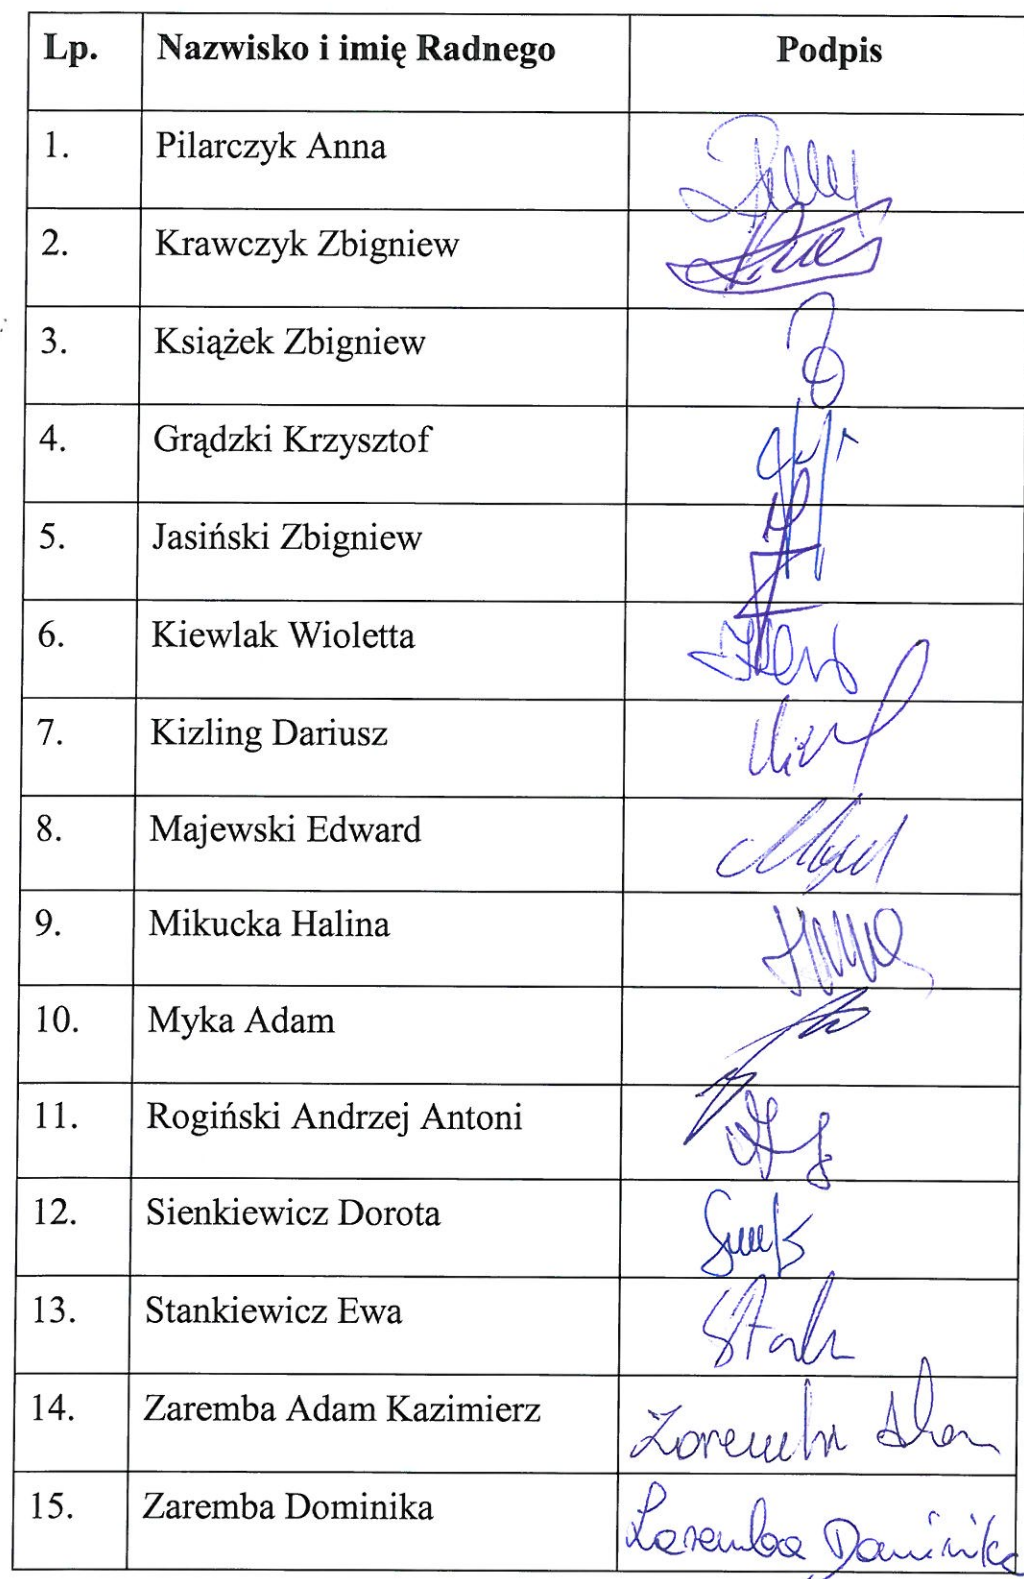 Lp. Nazwisko i imię Radnego Podpis
1. Pilarczyk Anna
2. Krawczyk Zbigniew
3. Książek Zbigniew
4. Grądzki Krzysztof
5. Jasiński Zbigniew
6. Kiewlak Wioletta
7. Kizling Dariusz
8. Majewski Edward
9. Mikucka Halina
10. Myka Adam
11. Rogiński Andrzej Antoni
12. Sienkiewicz Dorota
13. Stankiewicz Ewa
14. Zaremba Adam Kazimierz Zaremba Adam
15. Zaremba Dominika Zaremba Dominika